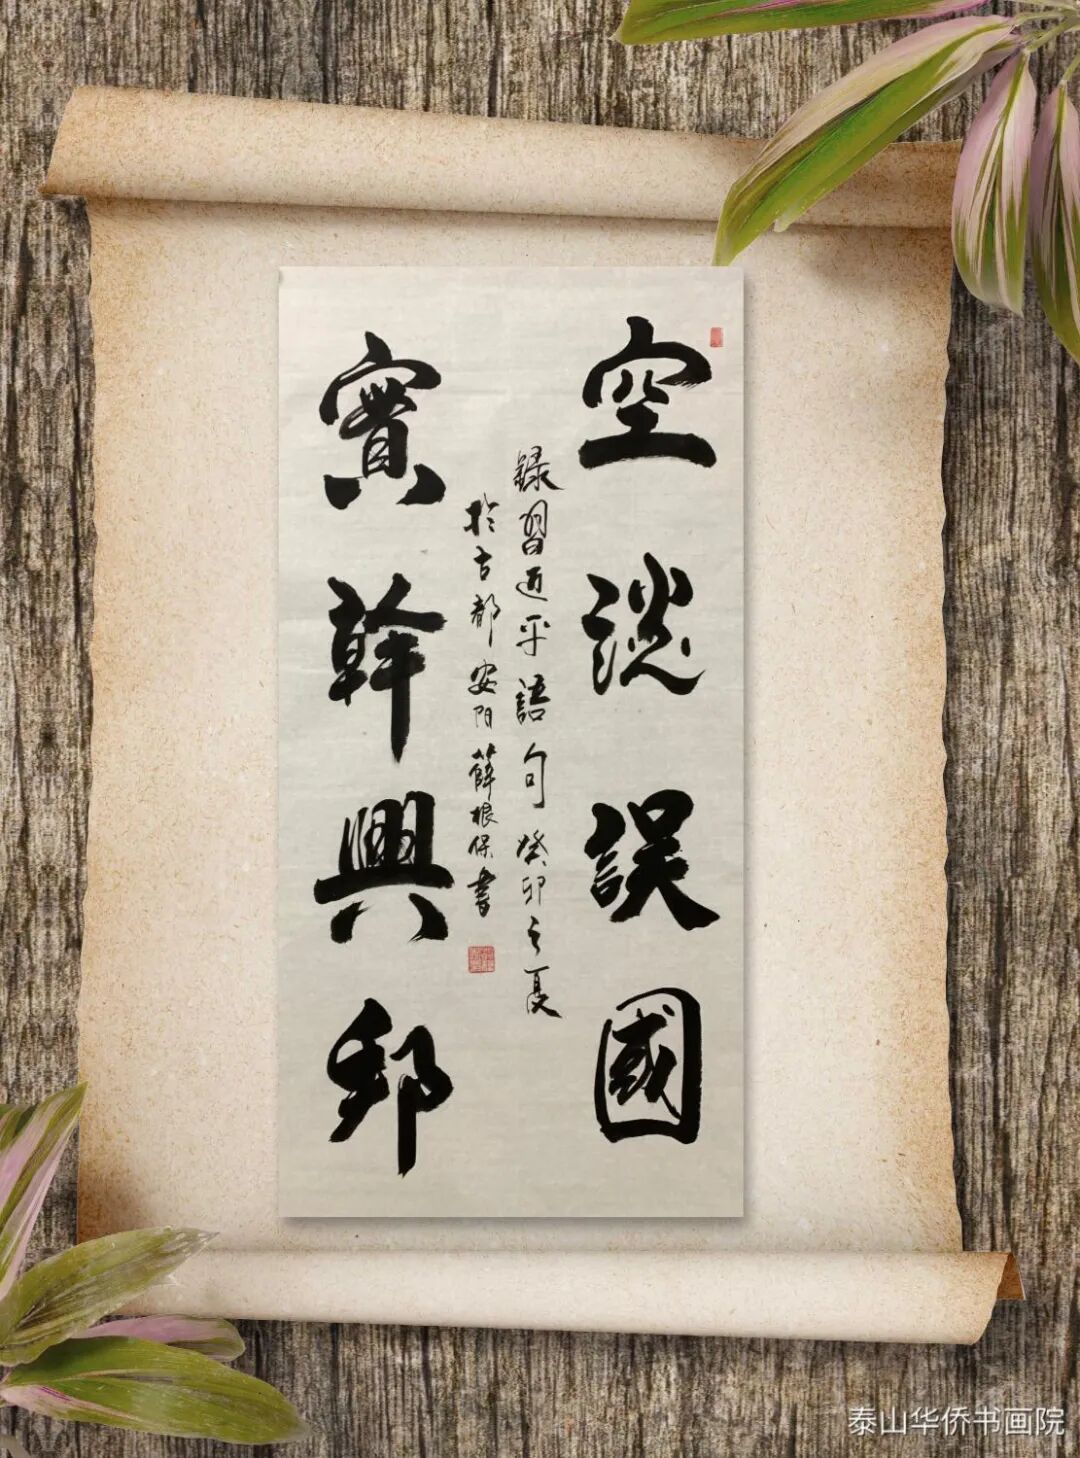 空談誤國
錄習近平語句癸卯之夏
於古都安阳薛根保書
實幹興邦
泰山华侨书画院